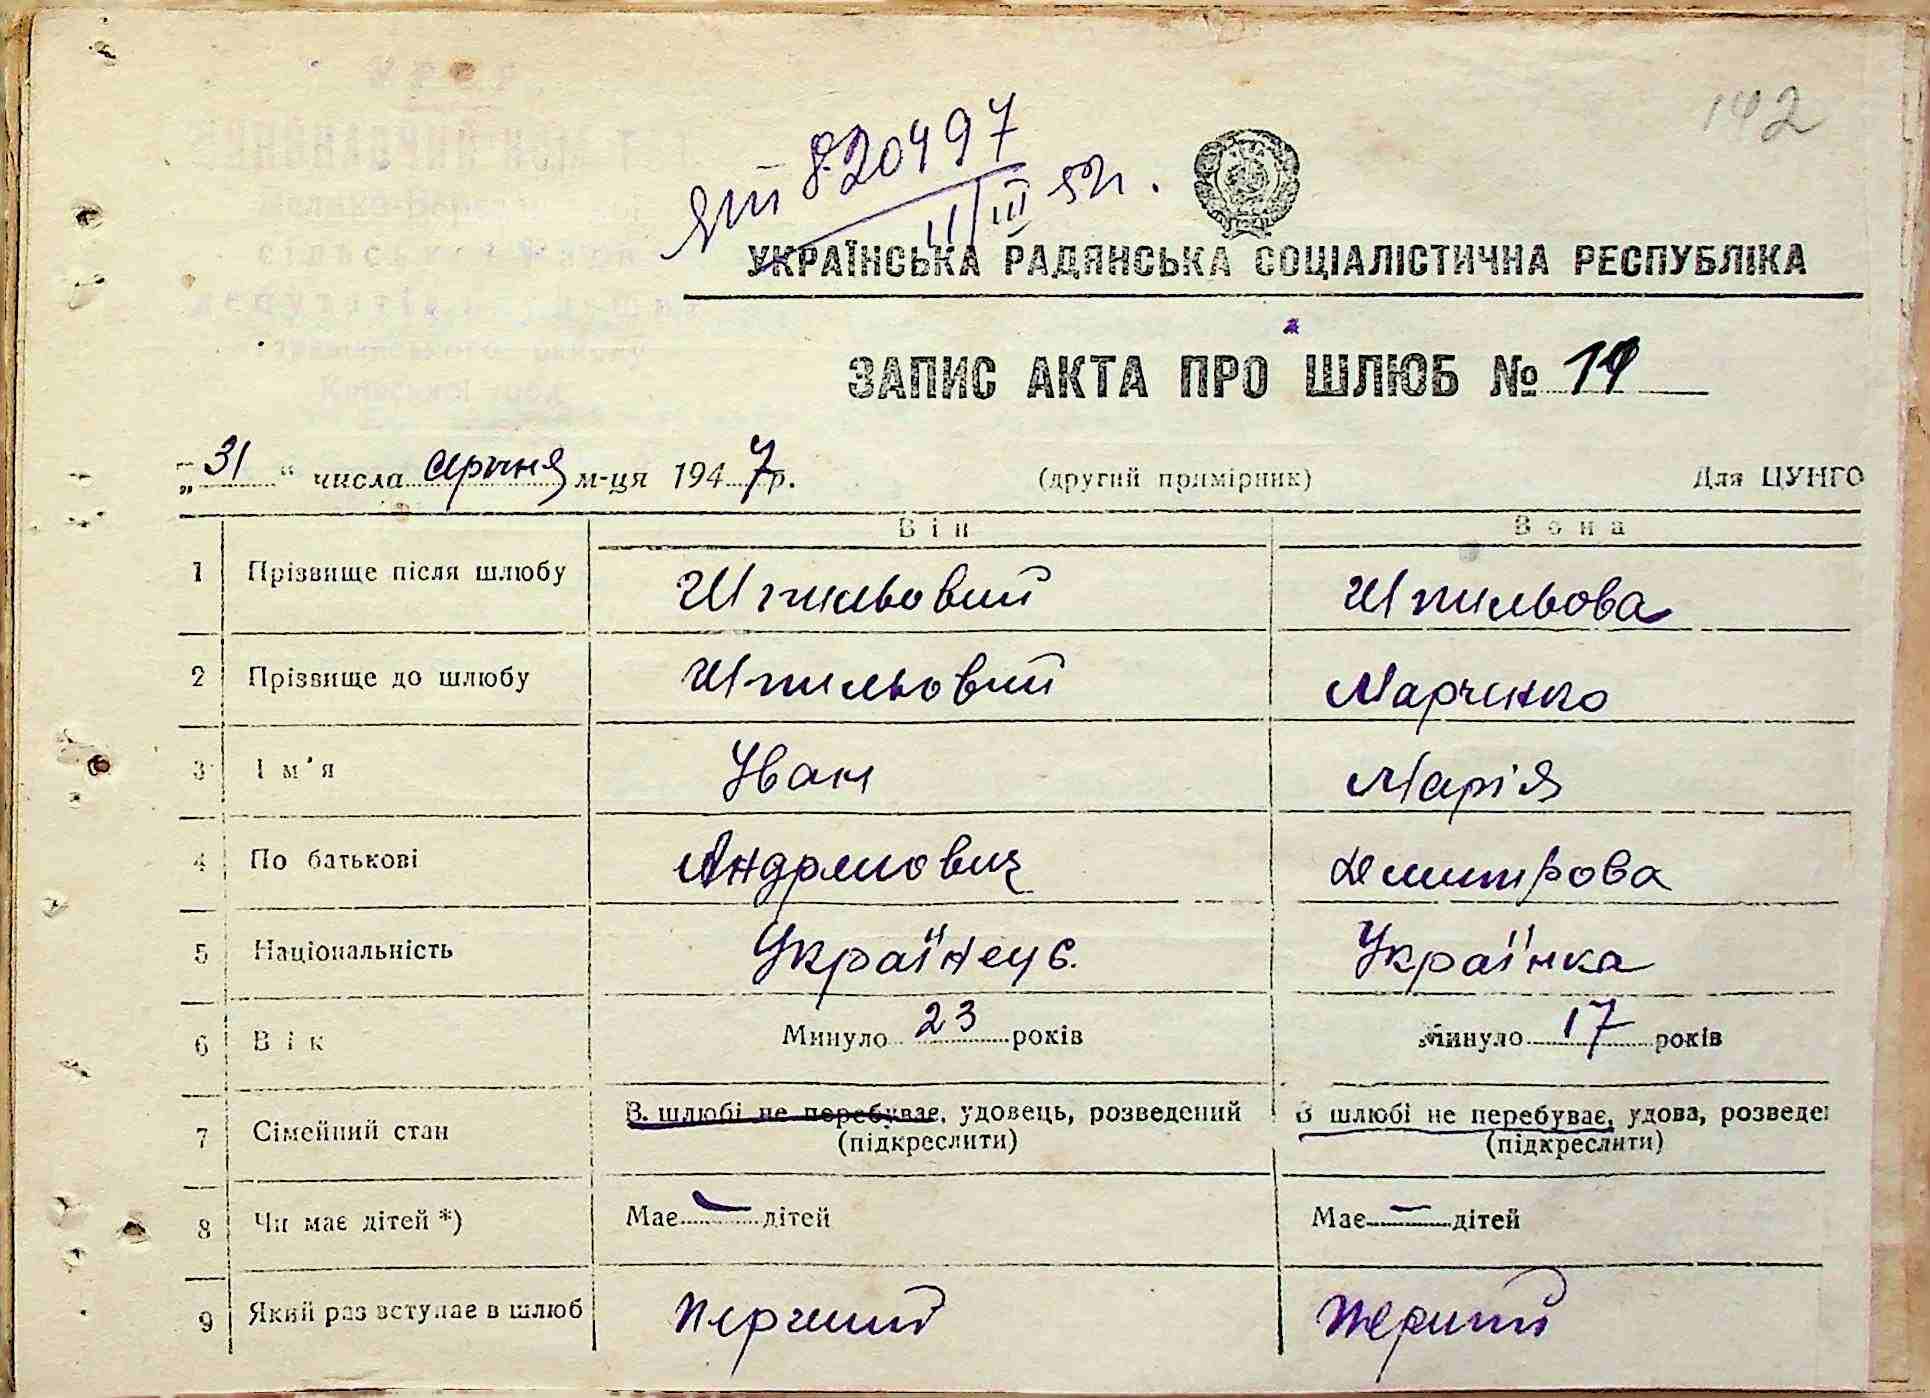 142
820497
11/III 52г.
УКРАЇНСЬКА РАДЯНСЬКА СОЦІАЛІСТИЧНА РЕСПУБЛІКА
ЗАПИС АКТА ПРО ШЛЮБ № 19
„31“ числа серпня м-ця 1947р. (другий примірник) Для ЦУНГО
Він Вона
1 Прізвище після шлюбу Шпильовий Шпильова
2 Прізвище до шлюбу Шпильовий Марченко
3 Ім'я Іван Марія
4 По батькові Андрійович Дмитрова
5 Національність Українець. Українка
6 Вік Минуло 23 років Минуло 17 років
7 Сімейний стан В шлюбі не перебуває, удовець, розведений В шлюбі не перебуває, удова, розведе
(підкреслити) (підкреслити)
8 Чи має дітей *) Має — дітей Має — дітей
9 Який раз вступає в шлюб Перший Перший